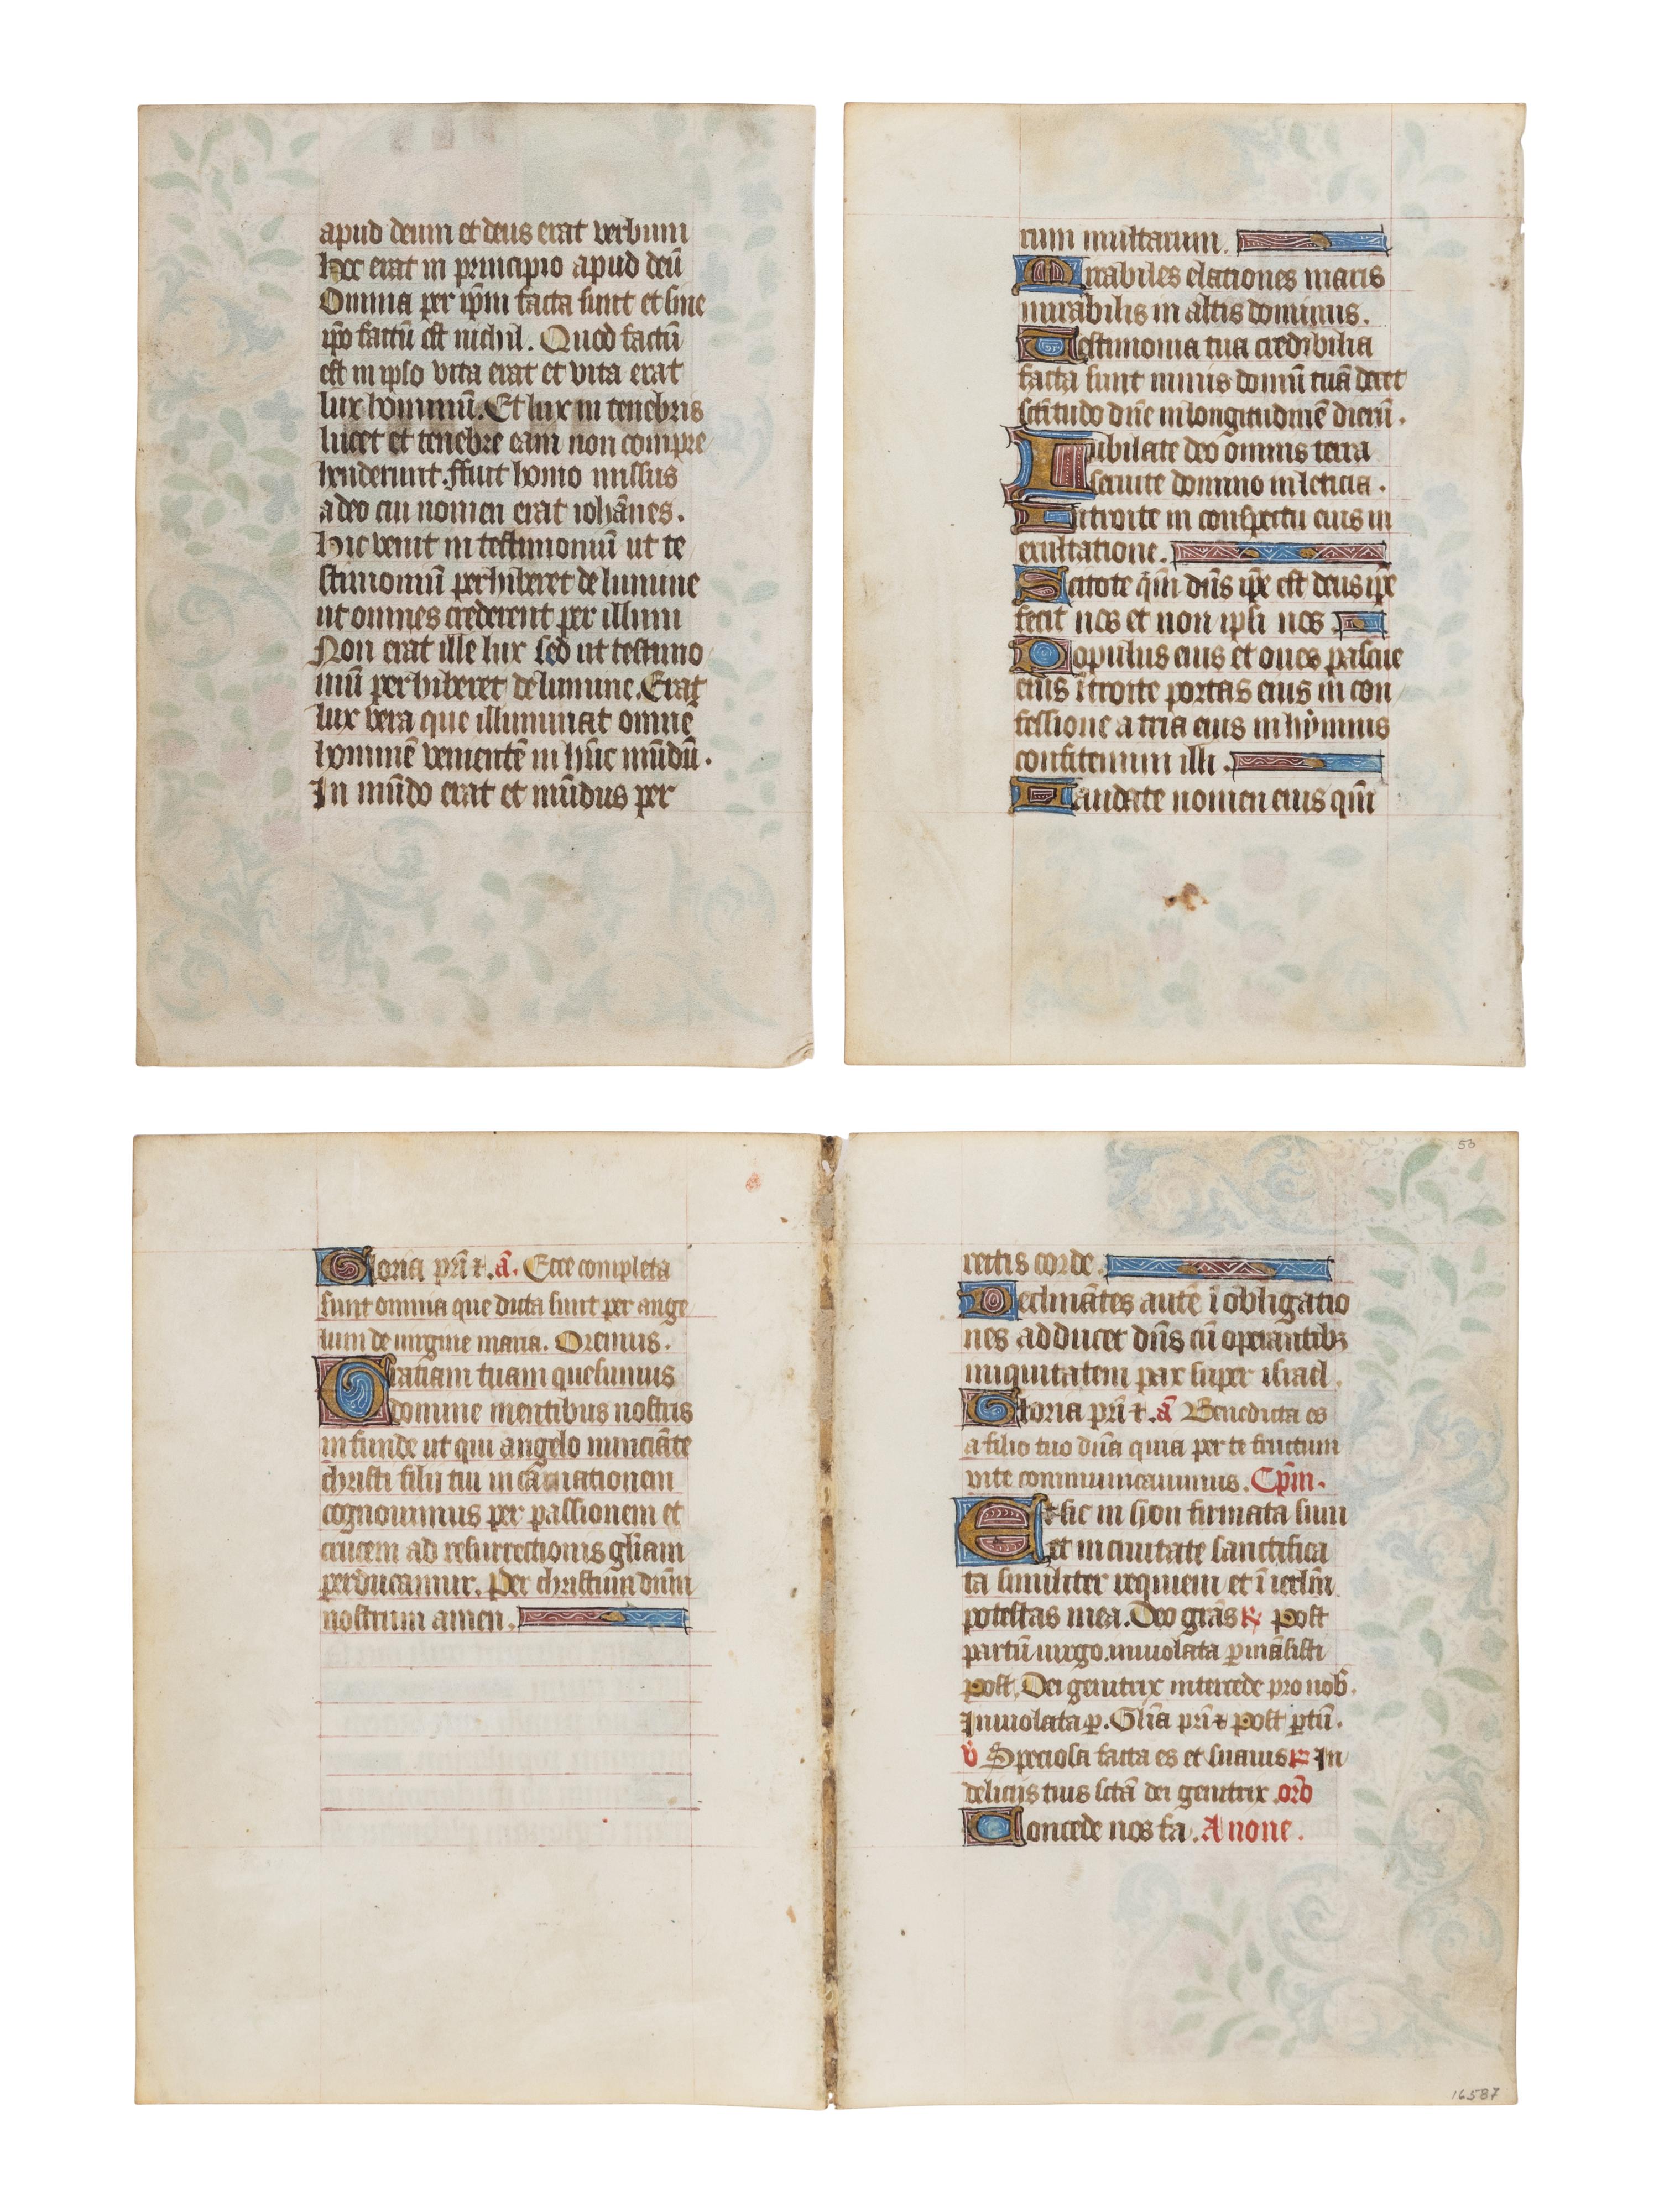 apud deum et deus erat verbum
hoc erat in principio apud deū
Omnia per ip̄m facta sunt et sine
ip̄o factū est nichil. Quod factū
est in ipso vita erat et vita erat
lux hominū. Et lux in tenebris
lucet et tenebre eam non compre
henderunt. ffuit homo missus
a deo cui nomen erat iohānes.
hic venit in testimoniū ut te
stimoniū perhiberet de lumine
ut omnes crederent per illum
Non erat ille lux sed ut testimo
niū perhiberet de lumine. Erat
lux vera que illuminat omnē
hominē venientē in hūc mūdū.
In mūdo erat et mūdus per
rum multarum.
Mirabiles elationes maris
mirabilis in altis dominus.
Testimonia tua credibilia
facta sunt nimis domū tuā decet
sc̄titudo dn̄e in longitudinē dierū.
Iubilate deo omnis terra
seruite domino in leticia.
Introite in conspectu eius in
exultatione.
Scitote qm̄ dn̄s ip̄e est deus ip̄e
fecit nos et non ipsi nos
Populus eius et oues pascue
eius ītroite portas eius in con
fessione atria eius in hymnis
confitemini illi.
Laudate nomen eius qm̄
Gloria pr̄i ⁊. ā. Ecce completa
sunt omnia que dicta sunt per ange
lum de uirgine maria. Oremus.
Gratiam tuam quesumus
domine mentibus nostris
infunde ut qui angelo nunciāte
christi filij tui incarnationem
cognouimus per passionem et
crucem ad resurrectionis gl̄iam
perducamur. Per christum dn̄m
nostrum amen.
50
rectis corde.
Declinātes autē ī obligatio
nes adducet dn̄s cū operantibꝫ
iniquitatem pax super israel.
Gloria pr̄i ⁊. ā Benedicta es
a filio tuo dn̄a quia per te fructum
vite communicauimus. Cp̄m.
Et sic in syon firmata sum
et in ciuitate sanctifica
ta similiter requieui et ī ierlm̄
potestas mea. Deo grās ℟ Post
partū uirgo. inuiolata p̄māsisti
post. Dei genitrix intercede pro nob̄.
Inuiolata ꝑ. Gl̄ia pr̄i ⁊ post ꝑtū.
℣ Speciosa facta es et suauis ℟ In
delicijs tuis sc̄tā dei genitrix. oro
Concede nos fa. A none.
16587